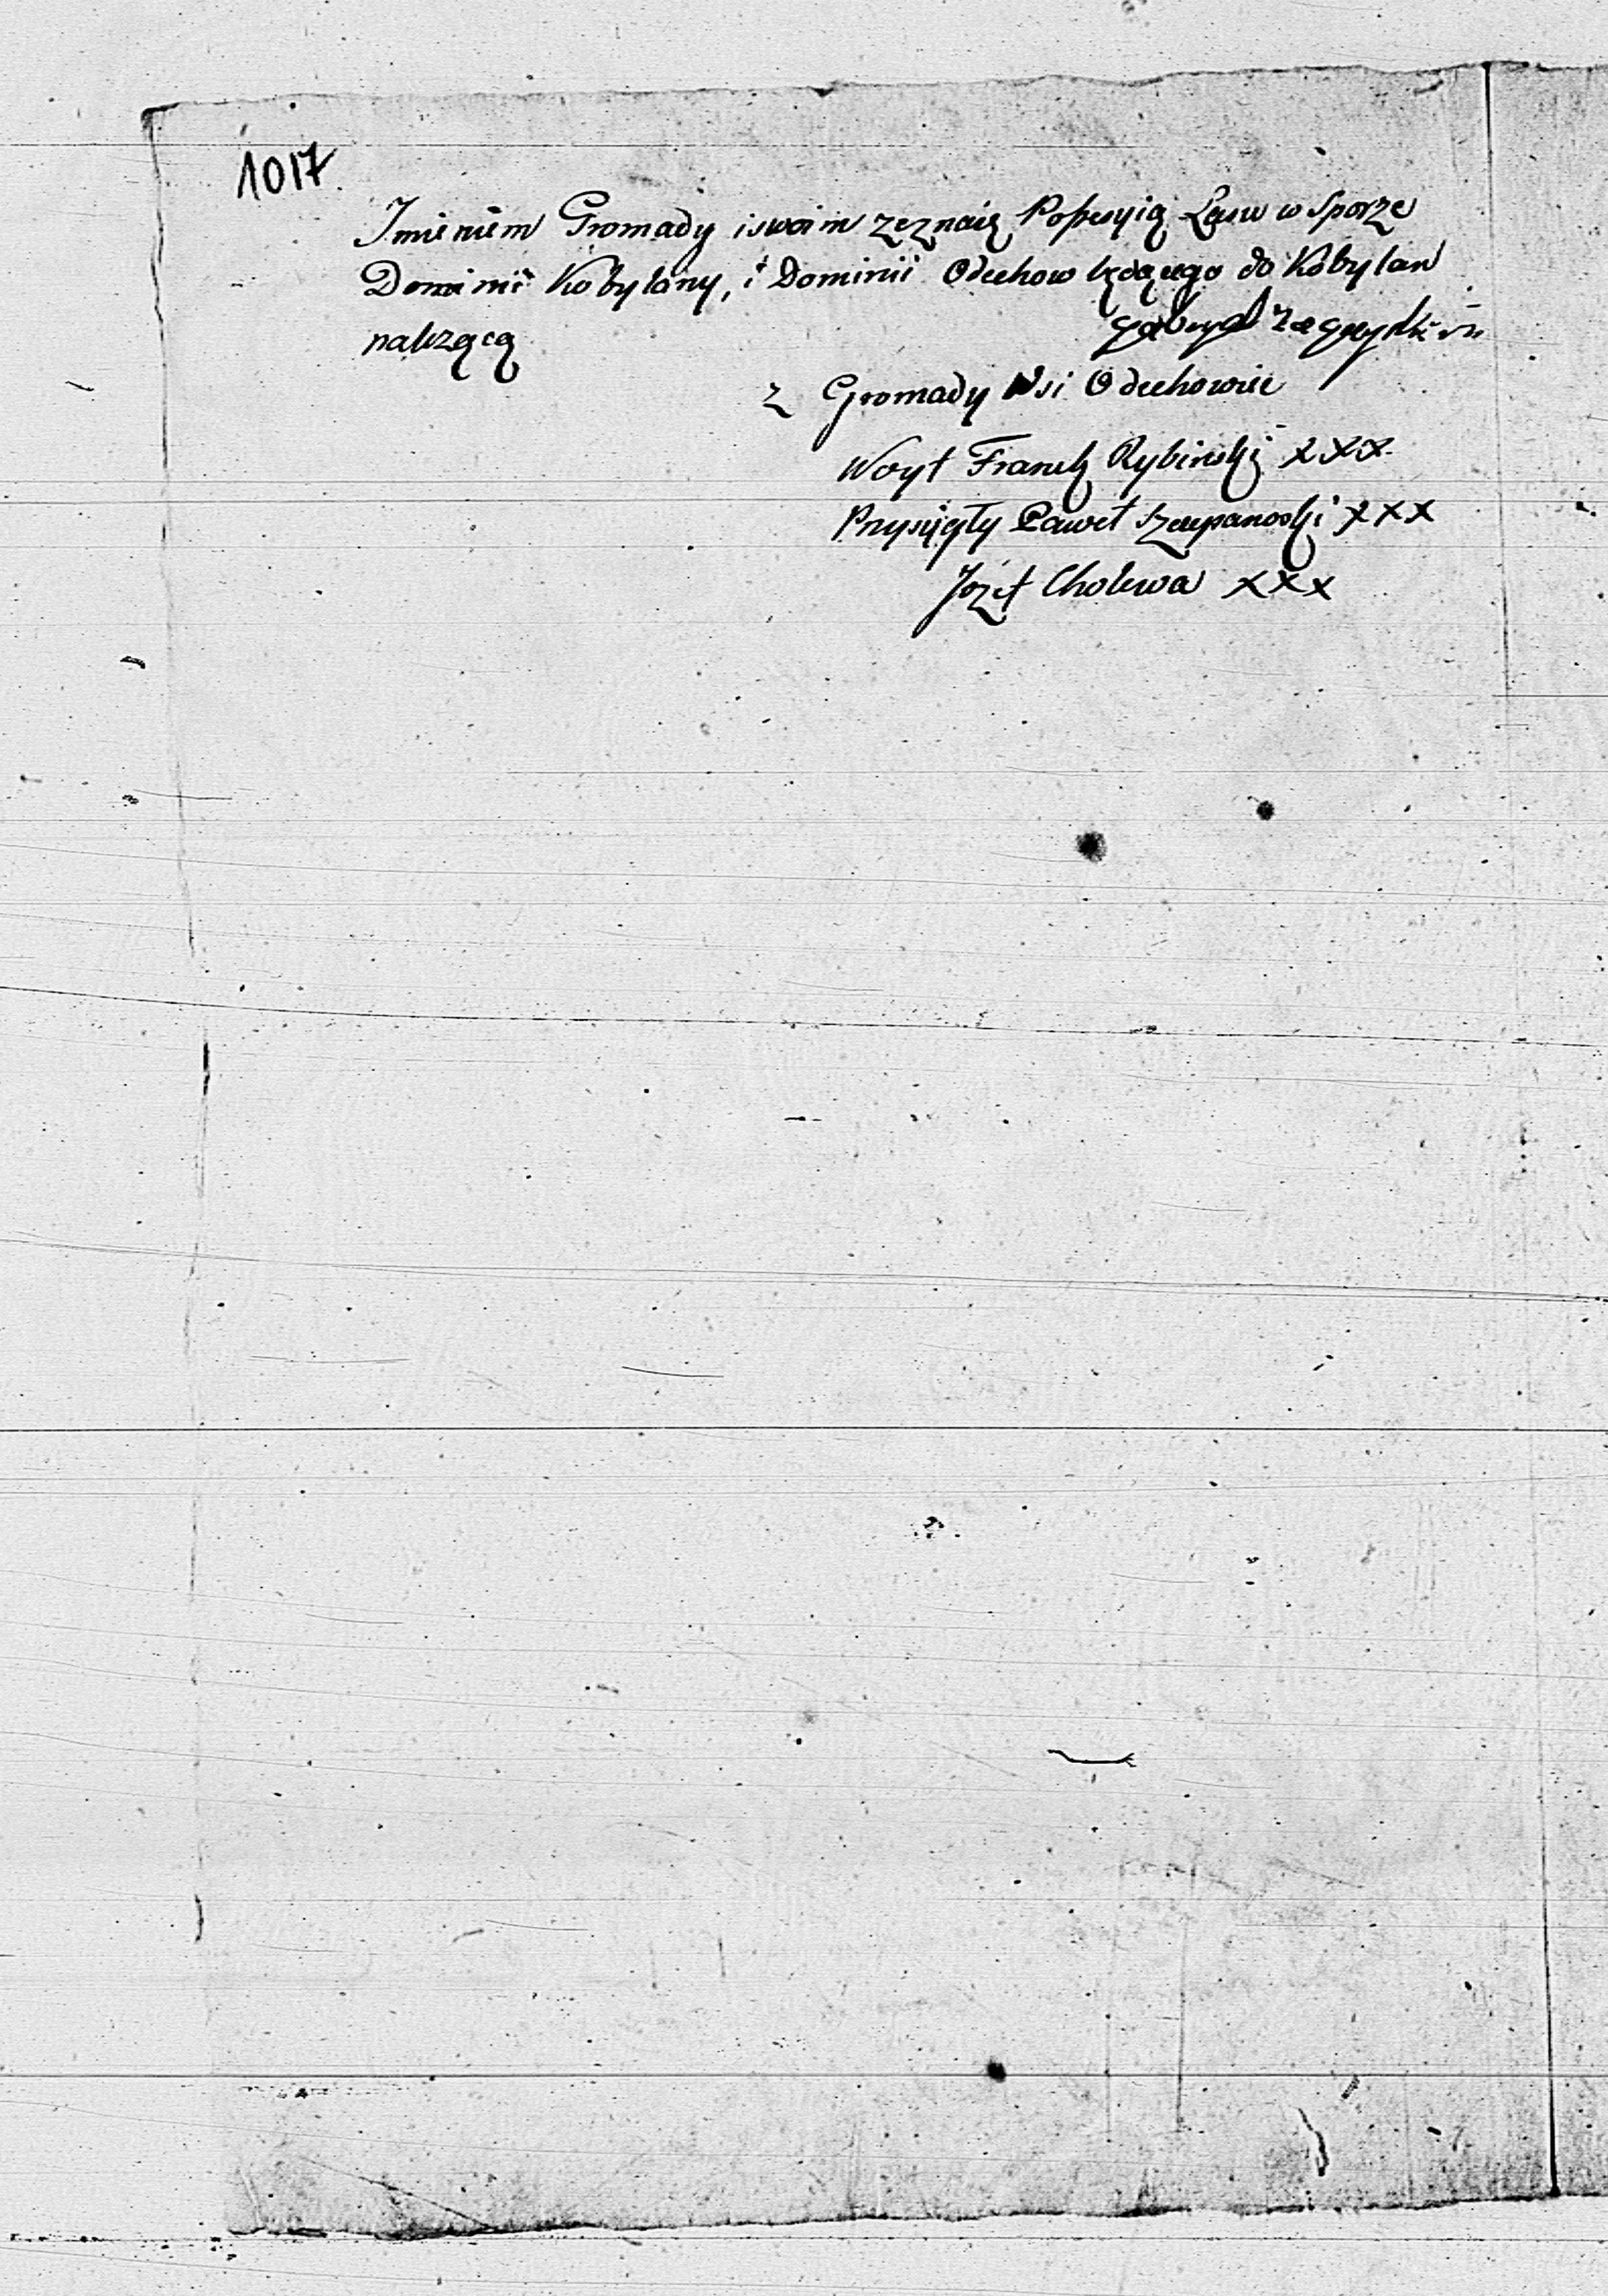 1017
Imieniem Gromady i swoim zeznaię Possesyią Lasu w Sporze
Dominii Kobylany, i Dominii Odechow będącego do Kobylan
należącą
z Gromady Wsi Odechowie
Woyt Franck Rybinski XXX
Przysięgły Paweł Szczepanoski XXX
Jozef Cholewa XXX